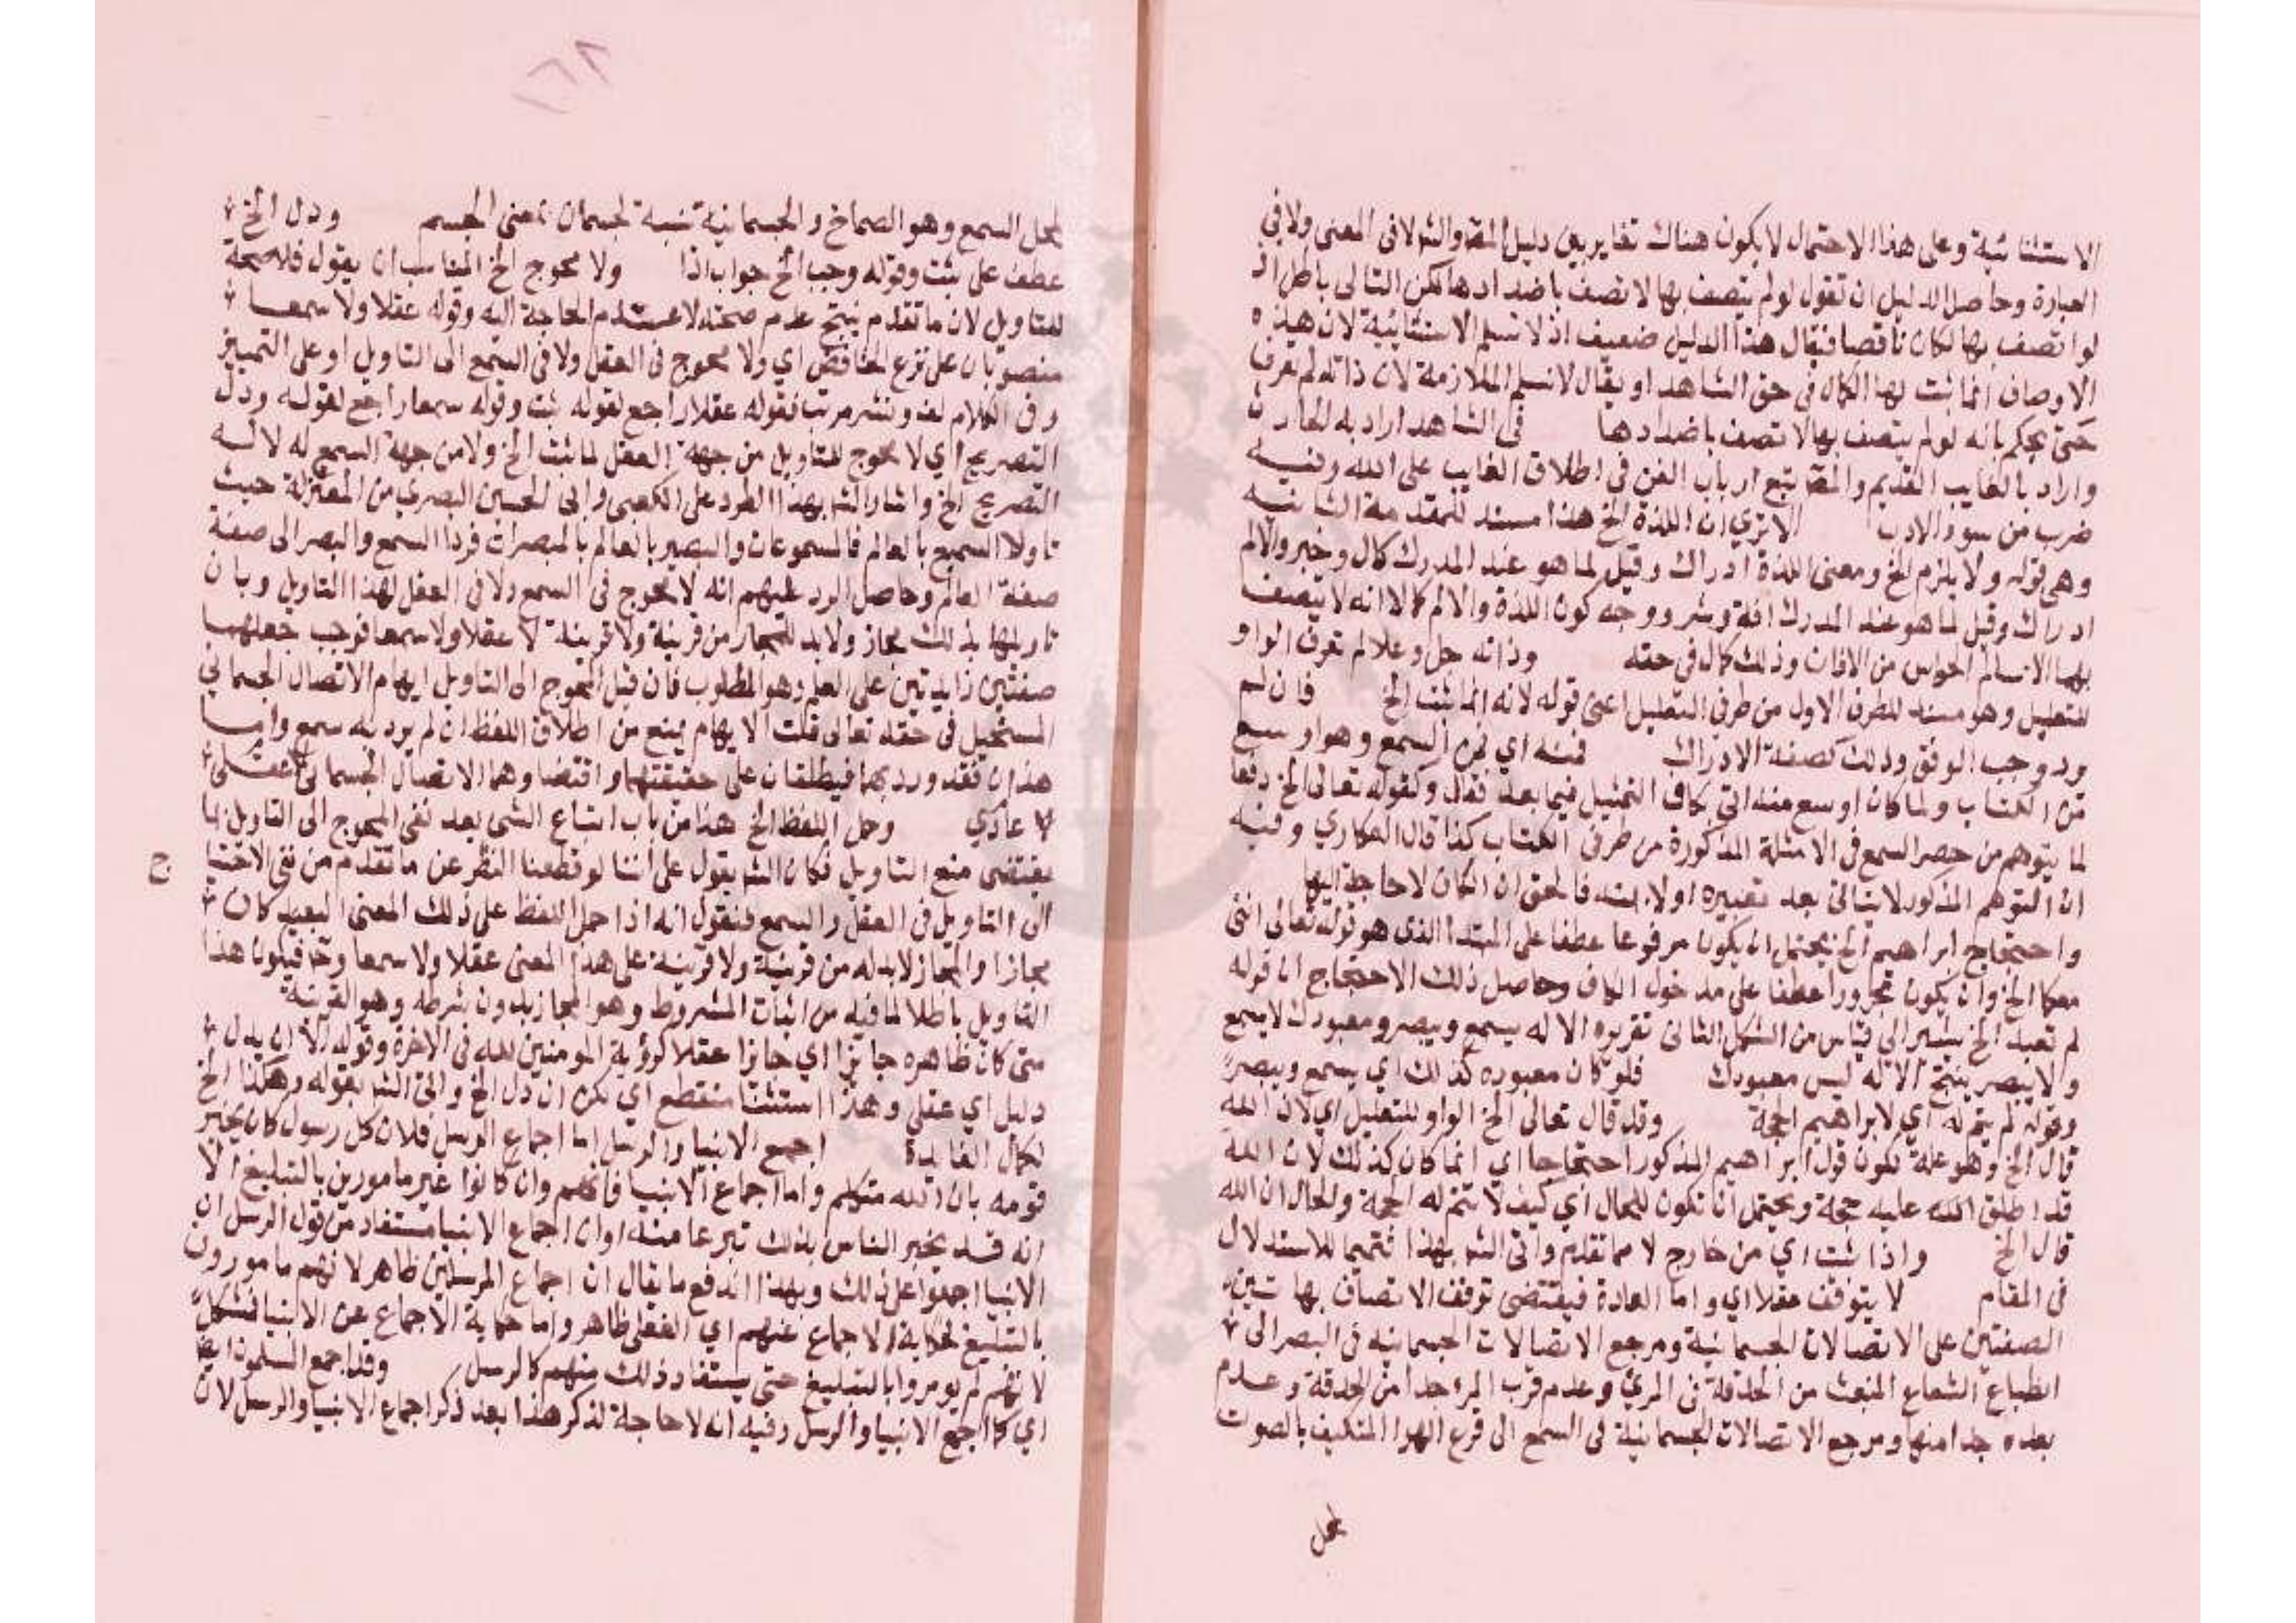 الاستثنائية وعلى هذا الاحتمال لا يكون هناك تغاير بين دليل المص والشر لا في المعنى ولا في
العبارة وحاصل الدليل ان تقول لو لم يتصف بها لاتصف باضدادها لكن التالي باطل اذ
لو اتصف بها لكان ناقصا فيقال هذا الدليل ضعيف اذ لا نسلم الاستثنائية لان هذه
الاوصاف انما ثبت لها الكمال في حق الشاهد او يقال لا نسلم الملازمة لان ذاته لم تعرف
حتى يحكم بانه لو لم يتصف بها لاتصف باضدادها في الشاهد اراد به الحادث
واراد بالغايب القديم والمص تبع ارباب الفن في اطلاق الغايب على الله وفيه
ضرب من سوء الادب الا تري ان اللذة الخ هذا مسند للمقدمة الثانية
وهي قوله ولا يلزم الخ ومعنى اللذة ادراك وقيل لما هو عند المدرك كمال وخير والالم
ادراك وقيل لما هو عند المدرك افة وشر ووجه كون اللذة والالم كمالا انه لا يتصف
بهما الا سالم الحواس من الافات وذلك كمال في حقه وذاته جل وعلا لم تعرف الواو
للتعليل وهو مسند للطرف الاول من طرفي التعليل اعني قوله لانه انما ثبت الخ فان لم
يرد وجب الوقف وذلك كصفة الادراك فمنه اي من السمع وهو اوسع
من الكتاب ولما كان اوسع منه اتى بكاف التمثيل فيما بعد فقال وكقوله تعالى الخ دفعا
لما يتوهم من حصر السمع في الامثلة المذكورة من طرفي الكتاب كذا قال العكاري وفيه
ان التوهم المذكور لا يتاتى بعد تعبيره اولا بمنه فالحق ان الكاف لا حاجة اليها
واحتجاج ابراهيم الخ يحتمل ان يكون مرفوعا عطفا على المبتدا الذي هو قوله تعالى انني
معكما الخ وان يكون مجرورا عطفا على مدخول الكاف وحاصل ذلك الاحتجاج ان قوله
لم تعبد الخ يشير الى قياس من الشكل الثاني تقريره الاله يسمع ويبصر ومعبودك لا يسمع
ولا يبصر ينتج الاله ليس معبودك فلو كان معبوده كذلك اي يسمع ويبصر
وقوله لم يتم له اي لابراهيم الحجة وقد قال تعالى الخ الواو للتعليل اي لان الله
قال الخ وهو علة لكون قول ابراهيم المذكور احتجاجا اي انما كان كذلك لان الله
قد اطلق الله عليه حجة ويحتمل ان تكون للحال اي كيف لا تتم له الحجة والحال ان الله
قال الخ واذا ثبت اي من خارج لا مما تقدم واتى الشر بهذا تتميما للاستدلال
في المقام لا يتوقف عقلا اي واما العادة فيقتضي توقف الاتصاف بهاتين
الصفتين على الاتصالات الجسمانية ومرجع الاتصالات الجسمانية في البصر الى
انطباع الشعاع المنبعث من الحدقة في المرئ وعدم قرب المرء جدا من الحدقة وعدم
بعده جدا منها ومرجع الاتصالات الجسمانية في السمع الى قرع الهوا المتكيف بالصوت
لمحل
لمحل السمع وهو الصماخ والجسمانية نسبة لجسمان بمعنى الجسم ودل الخ
عطف على ثبت وقوله وجب الخ جواب اذا ولا محوج الخ المناسب ان يقول فلا صحة
للتاويل لان ما تقدم ينتج عدم صحته لا عدم الحاجة اليه وقوله عقلا ولا سمعا
منصوبان على نزع الخافض اي ولا محوج في العقل ولا في السمع الى التاويل او على التمييز
وفي الكلام لف ونشر مرتب فقوله عقلا راجع لقوله ثبت وقوله سمعا راجع لقوله ودل
التصريح اي لا محوج للتاويل من جهة العقل لما ثبت الخ ولا من جهة السمع له لانه
التصريح الخ واشار الشر بهذا الطرد على الكعبي والى الحسين البصري من المعتزلة حيث
تاولا السميع بالعالم فالمسموعات والبصير بالعالم بالمبصرات فردا السمع والبصر الى صفة
صفة العالم وحاصل الرد عليهم انه لا محوج في السمع ولا في العقل لهذا التاويل وبان
تاويلها بذلك مجاز ولا بد للمجاز من قرينة ولا قرينة لا عقلا ولا سمعا فوجب جعلهما
صفتين زايدتين على العلم وهو المطلوب فان قيل المحوج الى التاويل ايهام الاتصال الجسماني
المستحيل في حقه تعالى قلت الايهام يمنع من اطلاق اللفظ ان لم يرد به سمع واما
هذان فقد ورد بهما فيطلقان على حقيقتهما واقتضاوهما الاتصال الجسماني عقلي
لا عادي وحمل اللفظ الخ هذا من باب امتناع الشي بعد نفي المحوج الى التاويل لما
يقتضي منع التاويل فكان الشر يقول على اننا لو قطعنا النظر عن ما تقدم من نفي الاحتيا
ج
الى التاويل في العقل والسمع فنقول انه اذا حمل اللفظ على ذلك المعنى البعيد كان
مجازا والمجاز لا بد له من قرينة ولا قرينة على هذا المعنى عقلا ولا سمعا وح فيكون هذا
التاويل باطلا لما فيه من اثبات المشروط وهو المجاز بدون شرطه وهو القرينة
متى كان ظاهره جايزا اي جايزا عقلا كرؤية المومنين لله في الاخرة وقوله الا ان يدل
دليل اي عقلي وهذا استثنا منقطع اي لكن ان دل الخ واتى الشر بقوله وهكذا الخ
لكمال الفايدة اجمع الانبيا والرسل اما اجماع الرسل فلان كل رسول كان يخبر
قومه بان الله متكلم واما اجماع الانبيا فانهم وان كانوا غير مامورين بالتبليغ الا
انه قد يخبر الناس بذلك تبرعا منه او ان اجماع الانبيا مستفاد من قول الرسل ان
الانبيا اجمعوا على ذلك وبهذا اندفع ما يقال ان اجماع المرسلين ظاهر لانهم مامورون
بالتبليغ لحكاية الاجماع عنهم اي الفعلى ظاهر واما حكاية الاجماع عن الانبيا فمشكل
لانهم لم يومروا بالتبليغ حتى يستفاد ذلك منهم كالرسل وقد اجمع المسلمون ايضا
اي كما اجمع الانبيا والرسل وفيه انه لا حاجة لذكر هذا بعد ذكر اجماع الانبيا والرسل لان